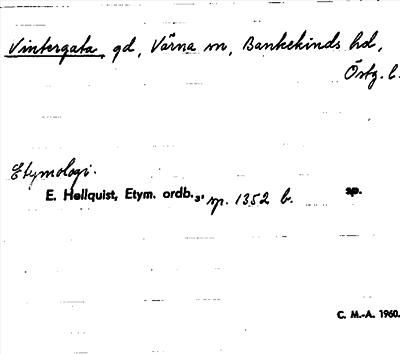 Vintergata gd, Värna sn, Bankekinds hd,
Östg. l.
Etymologi.
E. Hellquist, Etym. ordb.³, sp. 1352 b. sp.
C. M.-A. 1960.